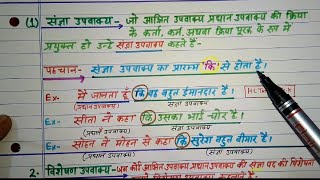 (1) संज्ञा उपवाक्य - जो आश्रित उपवाक्य प्रधान उपवाक्य की क्रिया
के कर्ता, कर्म, अथवा क्रिया पूरक के रूप में
प्रयुक्त हो उन्हें संज्ञा उपवाक्य कहते हैं-
पहचान- संज्ञा उपवाक्य का प्रारम्भ 'कि' से होता है।
Ex- मैं जानता हूँ कि वह बहुत ईमानदार है।
(प्रधान उपवाक्य) (संज्ञा उपवाक्य)
Ex- सीता ने कहा कि उसका भाई चोर है।
(प्रधान उपवाक्य) (संज्ञा उपवाक्य)
Ex- सोहन ने मोहन से कहा कि सुरेश बहुत बीमार है।
(प्रधान उपवाक्य) (संज्ञा उपवाक्य)
2- विशेषण उपवाक्य - जब कोई आश्रित उपवाक्य प्रधान उपवाक्य की संज्ञा पद की विशेषता